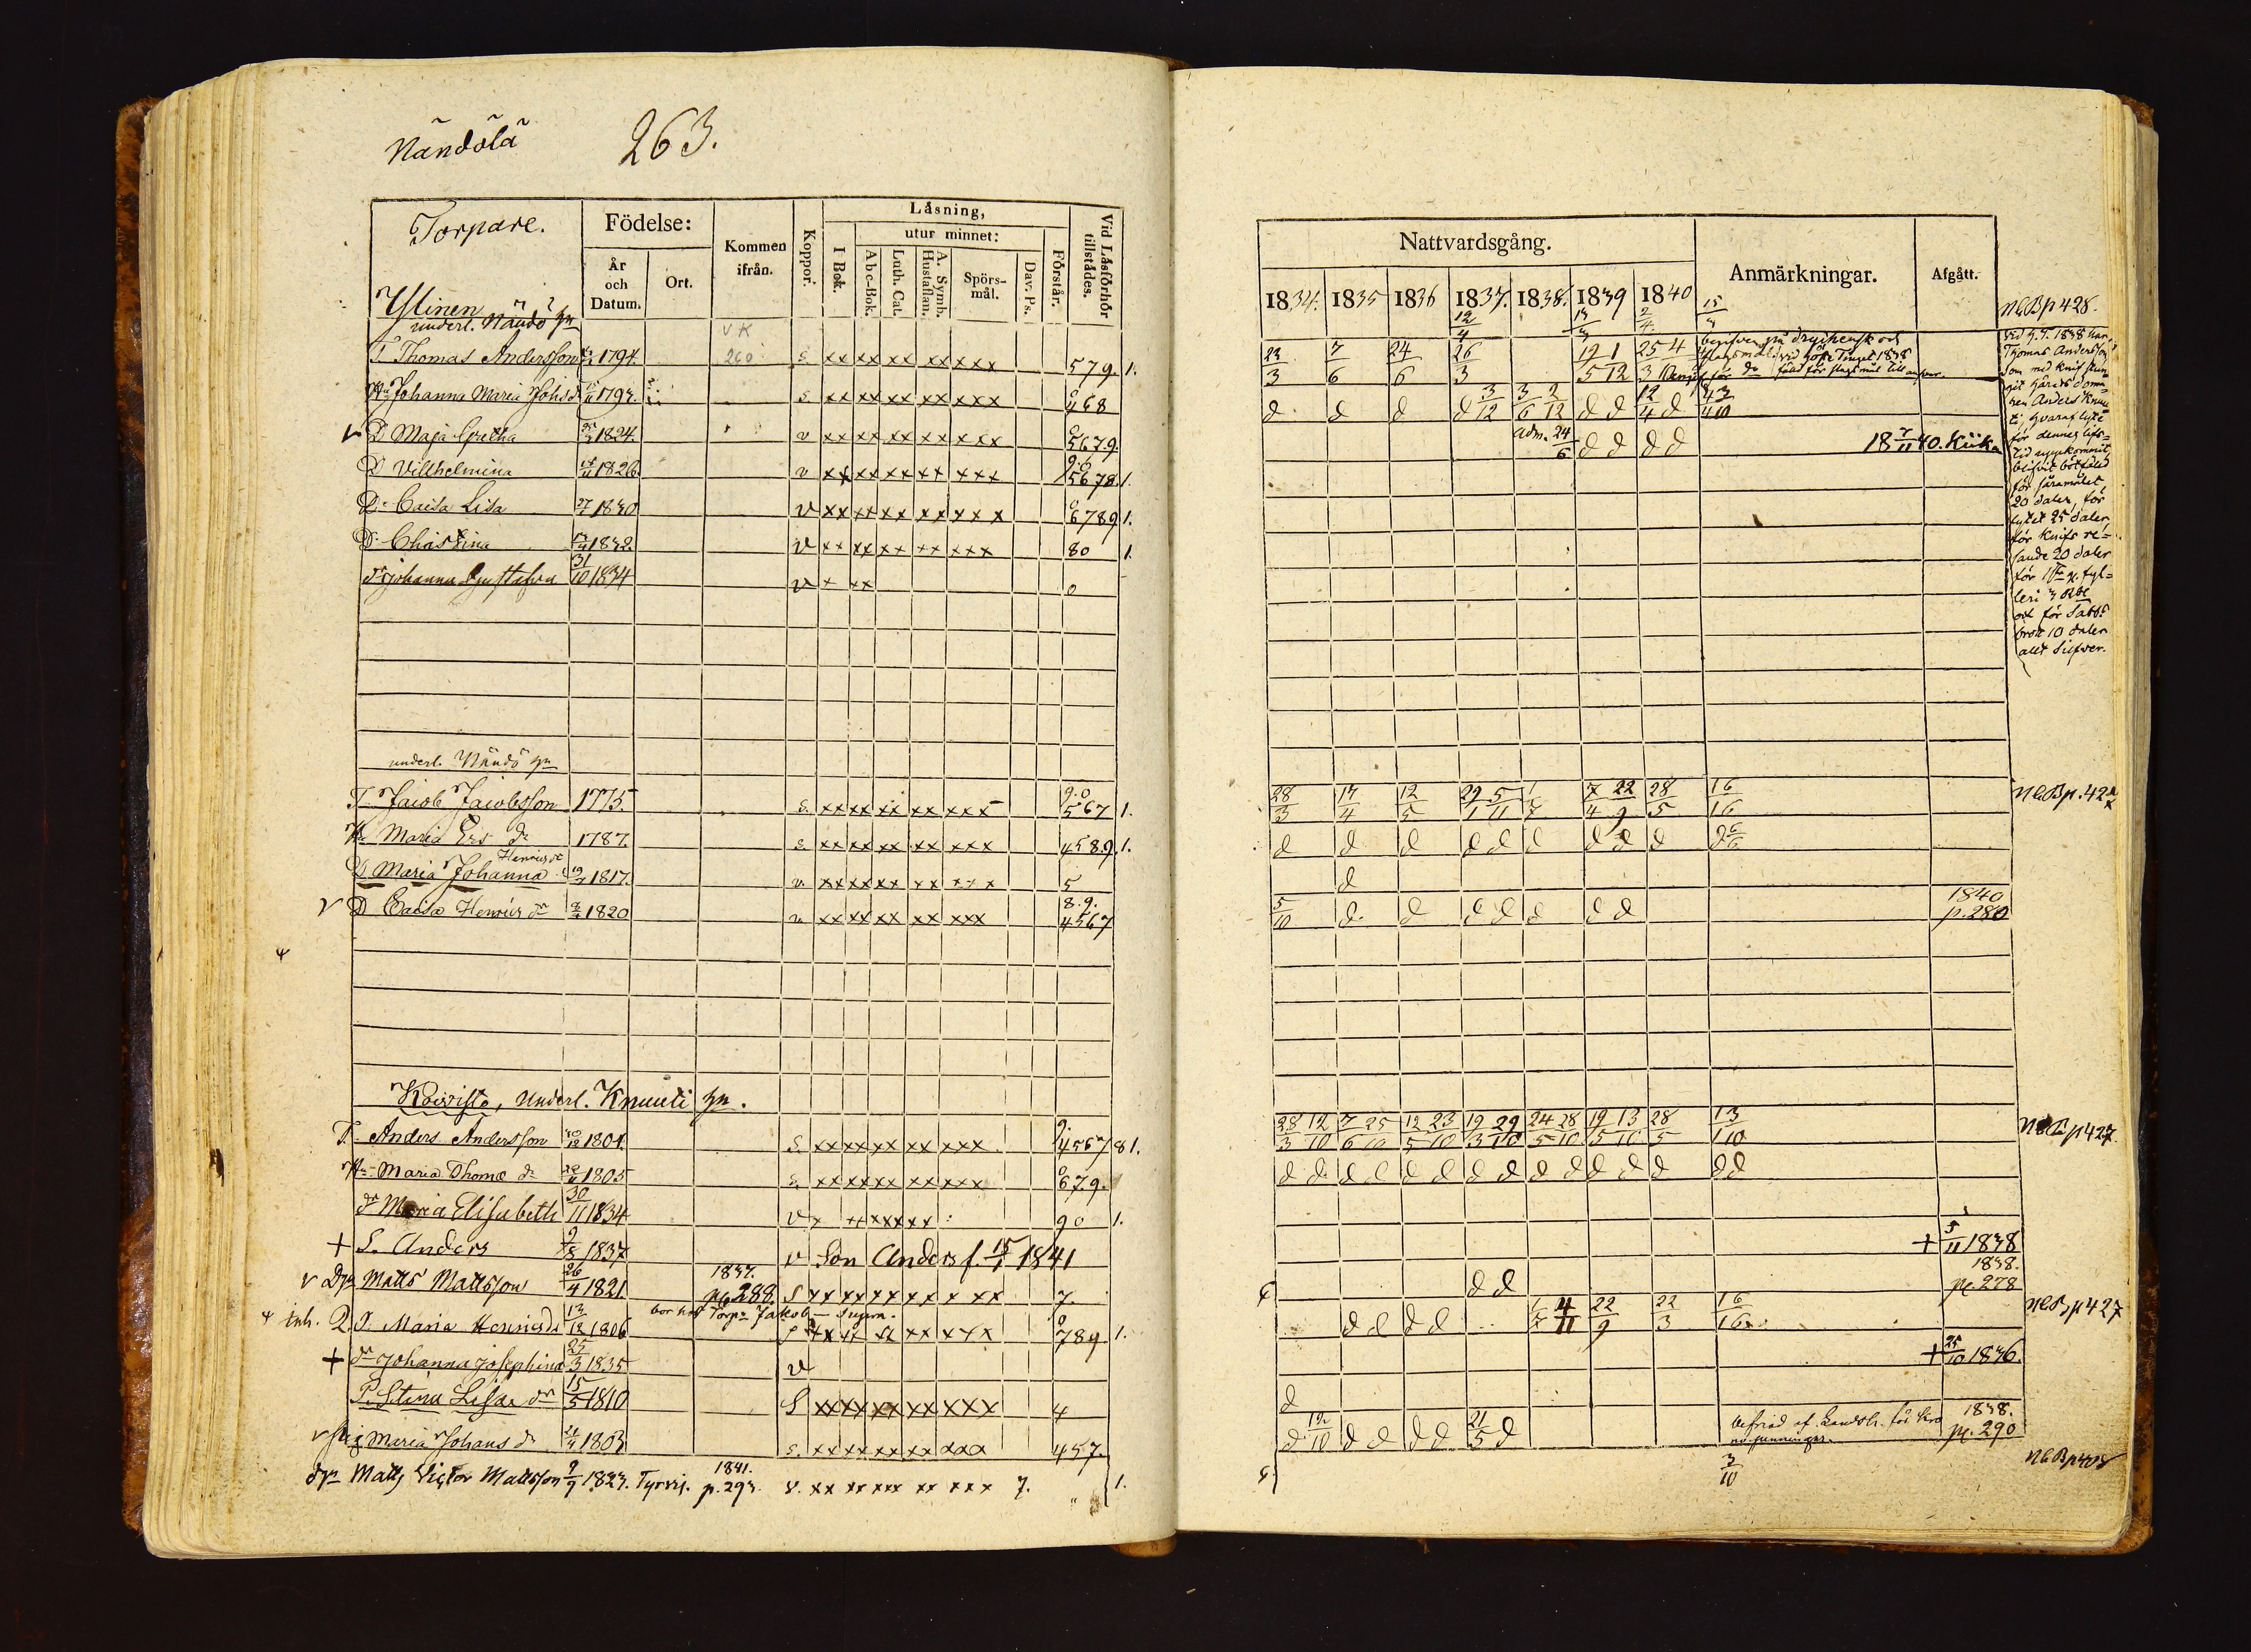 Nändölä 263.
Torpare.
Födelse:
År och Datum.
Ort.
Kommen ifrån.
Koppor.
Läsning,
I Bok.
utur minnet:
Abc-Bok.
Luth. Cat.
A. Symb. Hustaflan.
Spörs-mål.
Dav. Ps.
Förstår.
Vid Läsförhör tillstädes.
Ylinen
underl. Nändö hn
T Thomas Andersson 1794. 260 s xx xx xx xx xxx 579. 1.
Hu Johanna Maria Johsdr 1793. s xx xx xx xx xxx 468
v D Maja Gretha 1824. v xx xx xx xx xxx 567.9.
D Villhelmina 1826 v xx xx xx xx xxx 5678. 1.
D. Caisa Lisa 1830 v xx xx xx xx xxx 6789 1.
D. Christina 1832. v xx xx xx xx xxx 80 1.
dr Johanna Gustafva 31/10 1834 v x xx 0
underl. Nändö hn
T Jacob Jacobsson 1775. s. xx xx xx xx xxx 9.0 567 1.
Hu Maria Ers dr 1787. s. xx xx xx xx xxx 4589. 1.
Henricsdr
D Maria Johanna 1817. v. xx xx xx xx xxx 5
v D Caisa Henrics dr 1820 v xx xx xx xx xxx 8.9. 4567
Koivisto, underl. Knuuti hn.
T. Anders Andersson 1804. s. xx xx xx xx xxx 9. 4567 81.
Hu Maria Thomæ dr 1805 s. xx xx xx xx xxx 679.
dr Maria Elisabeth 30/11 1834 v x xx xx xx 90 1.
+ S. Anders 9/8 1837 v Son Anders f. 15/1 1841
v Drg Matts Mattsson 26/4 1821 1837. pg 288. s xx xx xx xx x xx 7.
inh. Q. P. Maria Henricsdr 13/12 1806 bor hos Torp Jakob supra. s xx xx xx xx xxx 789. 1.
+ dr Johanna Josephina 25/3 1835 v
P. Stina Lisa dr 15/5 1810 s xx xx xx xx xxx 4
v Maria Johans dr 1803 s. xx xx xx xx xxx 457.
drg Matts Victor Mattsson 9/9 1823. Tyrvis. 1841. p. 293. v. xx xx xxx xx xxx 7. 1.
Nattvardsgång.
Anmärkningar.
Afgått.
1834. 1835 1836 1837. 1838. 1839 1840
NCB p 428.
23/3 7/6 24/6 26/3 19/5 1/12 25/3 4
vid Höste Tinget 1838
fäld för slagsmål till ansvar.
d d d d 3/12 3/6 2/12 d d 12/4 d
Adm. 24/6 d d d d 18 7/11 40. Kiika
vid H. T. 1838 har
Thomas Andersson
som med knif stun-
git Härads dom-
ren Anders Knuu-
ti, hvaraf lyte
för dennes lifs-
tid uppkommit,
blifvit bötfäld
för såramålet
20 daler, för
lytet 25 daler,
för knifs
20 daler
för 1sta g. fyl-
leri 3 Rbl
och för Sabb.
brott 10 daler
allt Silfver.
28/3 14/4 12/5 29/1 5/11 1/7 7/4 22/9 28/5 16/16 NCB p. 42
d d d d d d d d d
d
5/10 d. d d d d d d 1840 p. 280
28/3 12/10 7/6 25/10 12/5 23/10 19/3 29/10 24/5 28/10 19/5 13/10 28/5 13/10 NCB p 427
d d d d d d d d d d d d d d d
+ 5/11 1838
d d 1838. pg. 278
d d d d 1/7 4/11 22/9 22/3 16/16 NCB p 427
+ 25/10 1836.
d
d 12/10 d d d d 21/5 d befriad af 1838. pg. 290
3/10